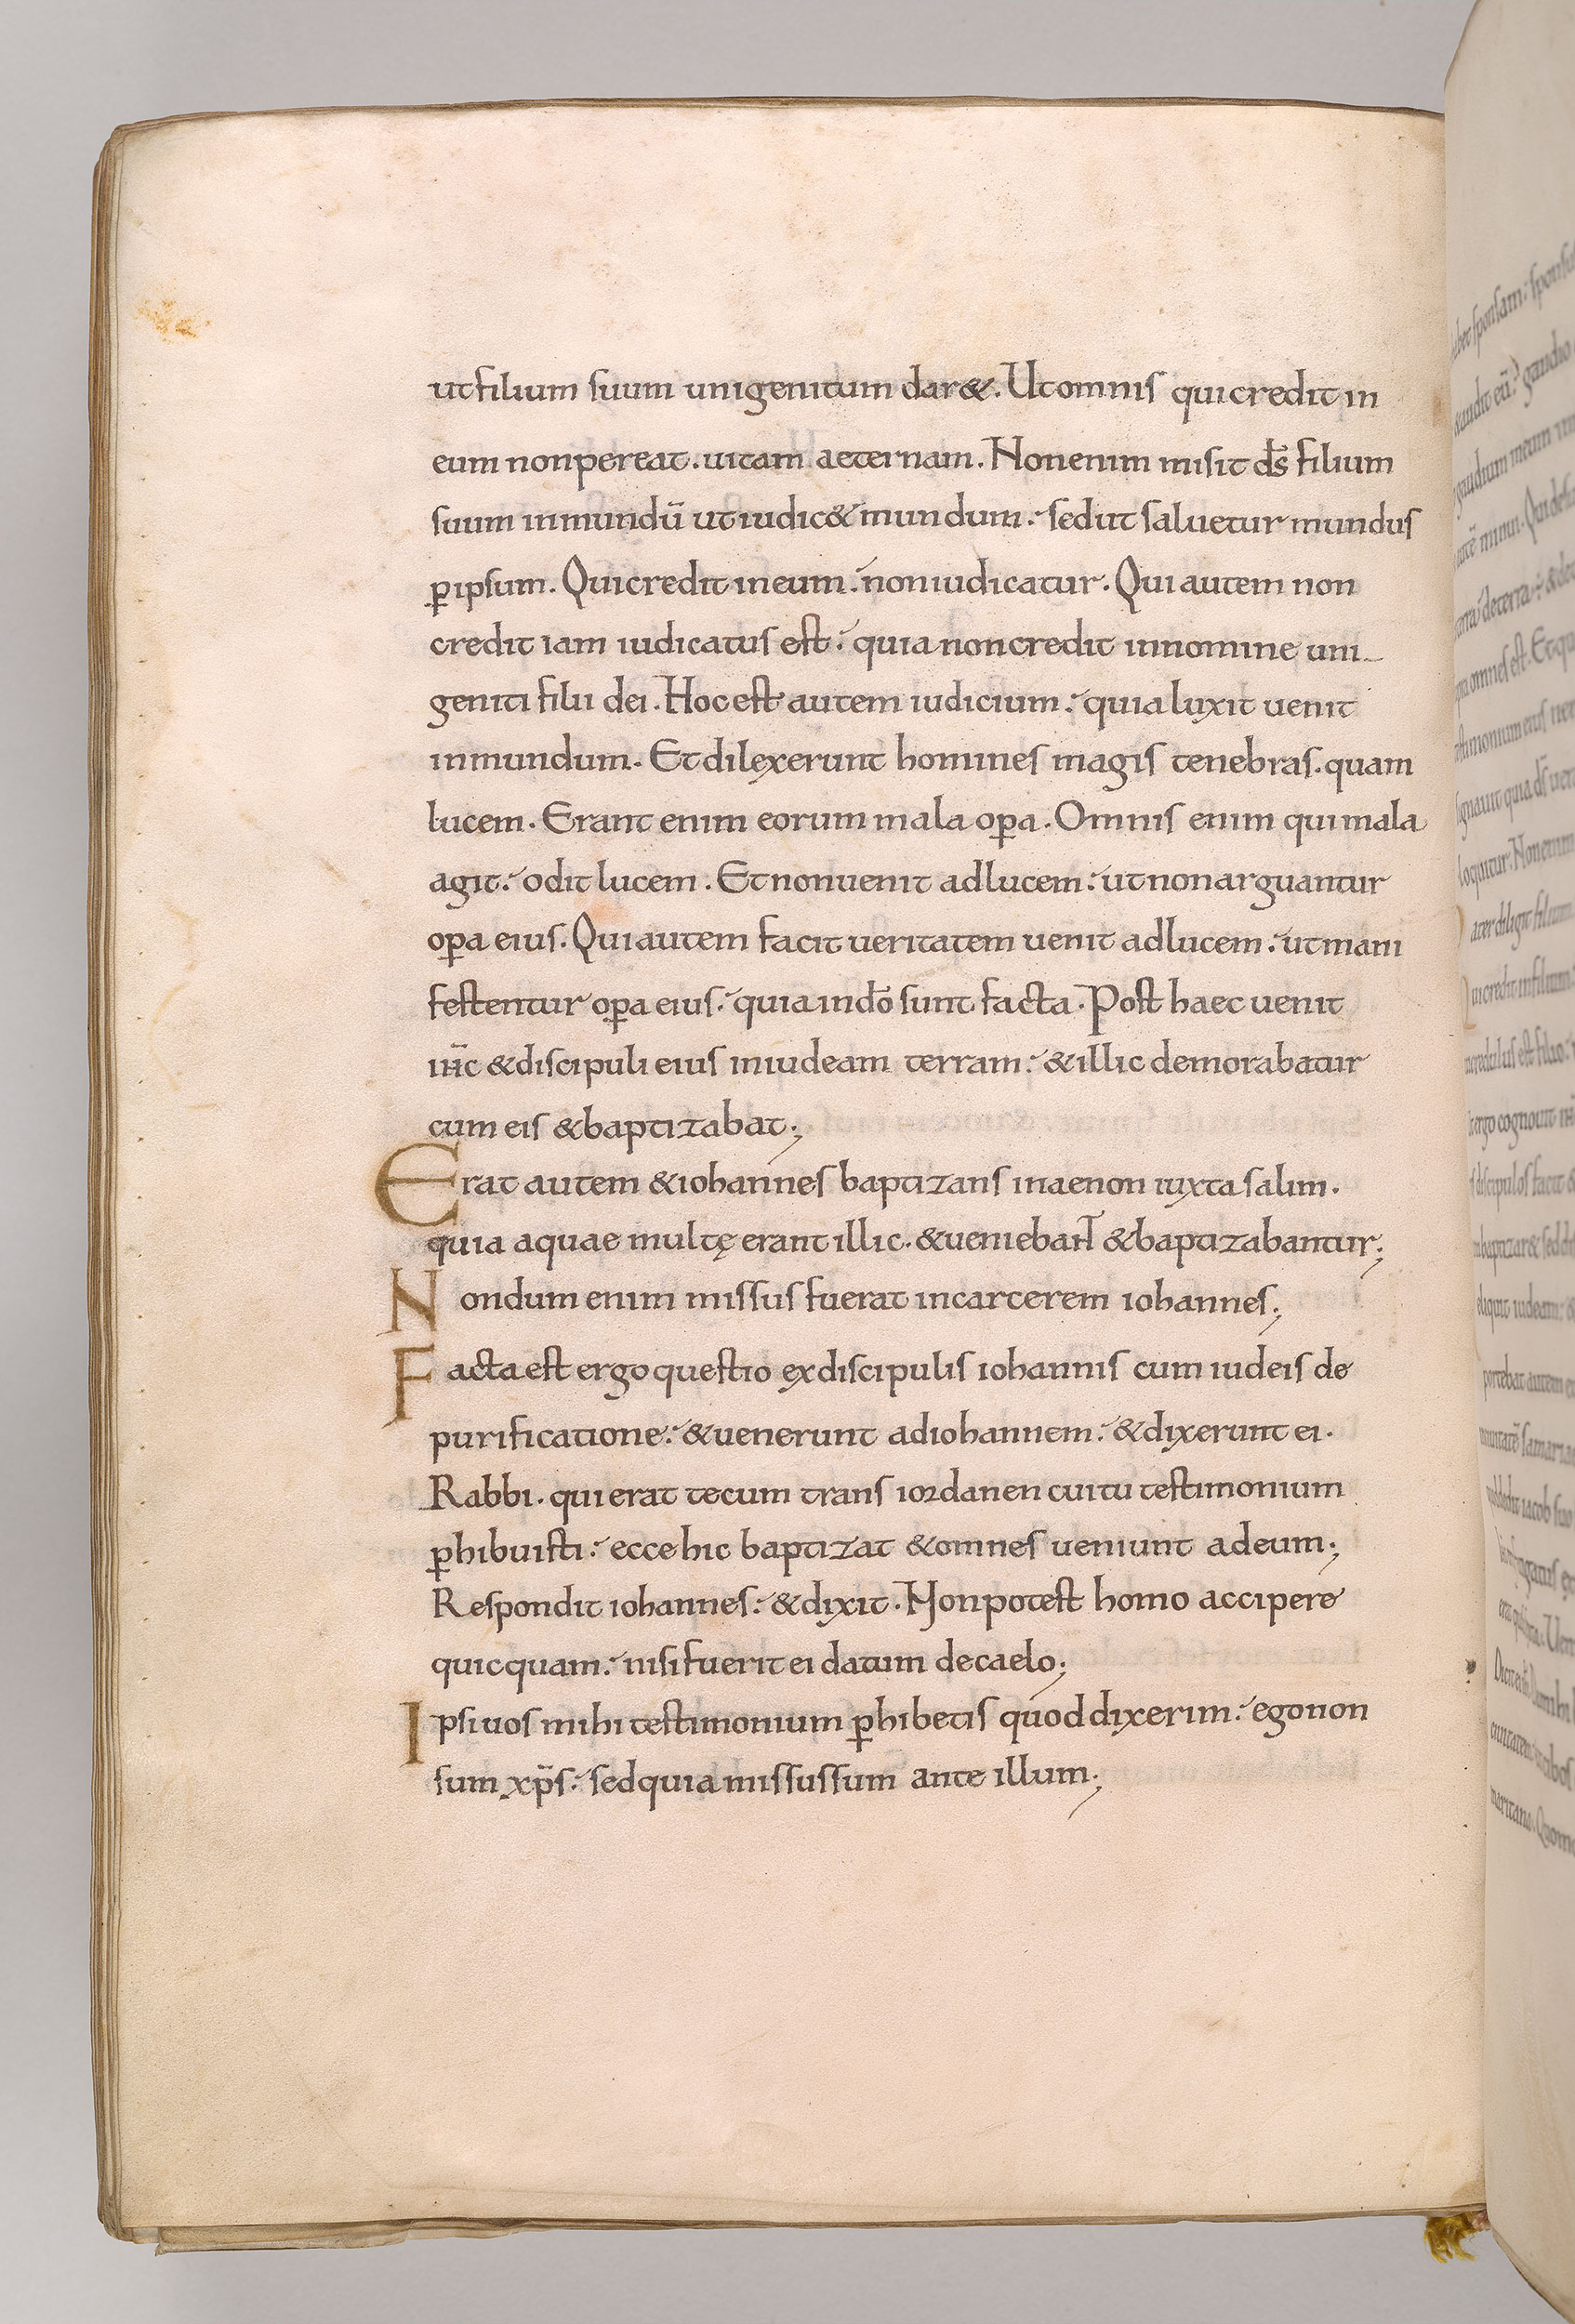 ut filium suum unigenitum dar&. Ut omnis qui credit in
eum non pereat. uitam aeternam. Non enim misit ds̄ filium
suum in mundū ut iudic& mundum: sed ut saluetur mundus
ꝑ ipsum. Qui credit in eum: non iudicatur. Qui autem non
credit iam iudicatus est: quia non credit in nomine uni-
geniti filii dei. Hoc est autem iudicium: quia luxit uenit
in mundum. Et dilexerunt homines magis tenebras. quam
lucem. Erant enim eorum mala oꝑa. Omnis enim qui mala
agit: odit lucem. Et non uenit ad lucem: ut non arguantur
oꝑa eius. Qui autem facit ueritatem uenit ad lucem: ut mani
festentur oꝑa eius: quia in dō sunt facta. Post haec uenit
ih̄c & discipuli eius in iudeam terram: & illic demorabatur
cum eis & baptizabat;
Erat autem & iohannes baptizans in aenon iuxta salim.
quia aquae multę erant illic. & ueniebant̄ & baptizabantur;
Nondum enim missus fuerat in carcerem iohannes;
Facta est ergo questio ex discipulis iohannis cum iudeis de
purificatione: & uenerunt ad iohannem: & dixerunt ei.
Rabbi. qui erat tecum trans iordanen cui tu testimonium
ꝑhibuisti: ecce hic baptizat & omnes ueniunt ad eum;
Respondit iohannes: & dixit. Non potest homo accipere
quicquam: nisi fuerit ei datum de caelo;
Ipsi uos mihi testimonium ꝑhibetis quod dixerim: ego non
sum xp̄s: sed quia missus sum ante illum;